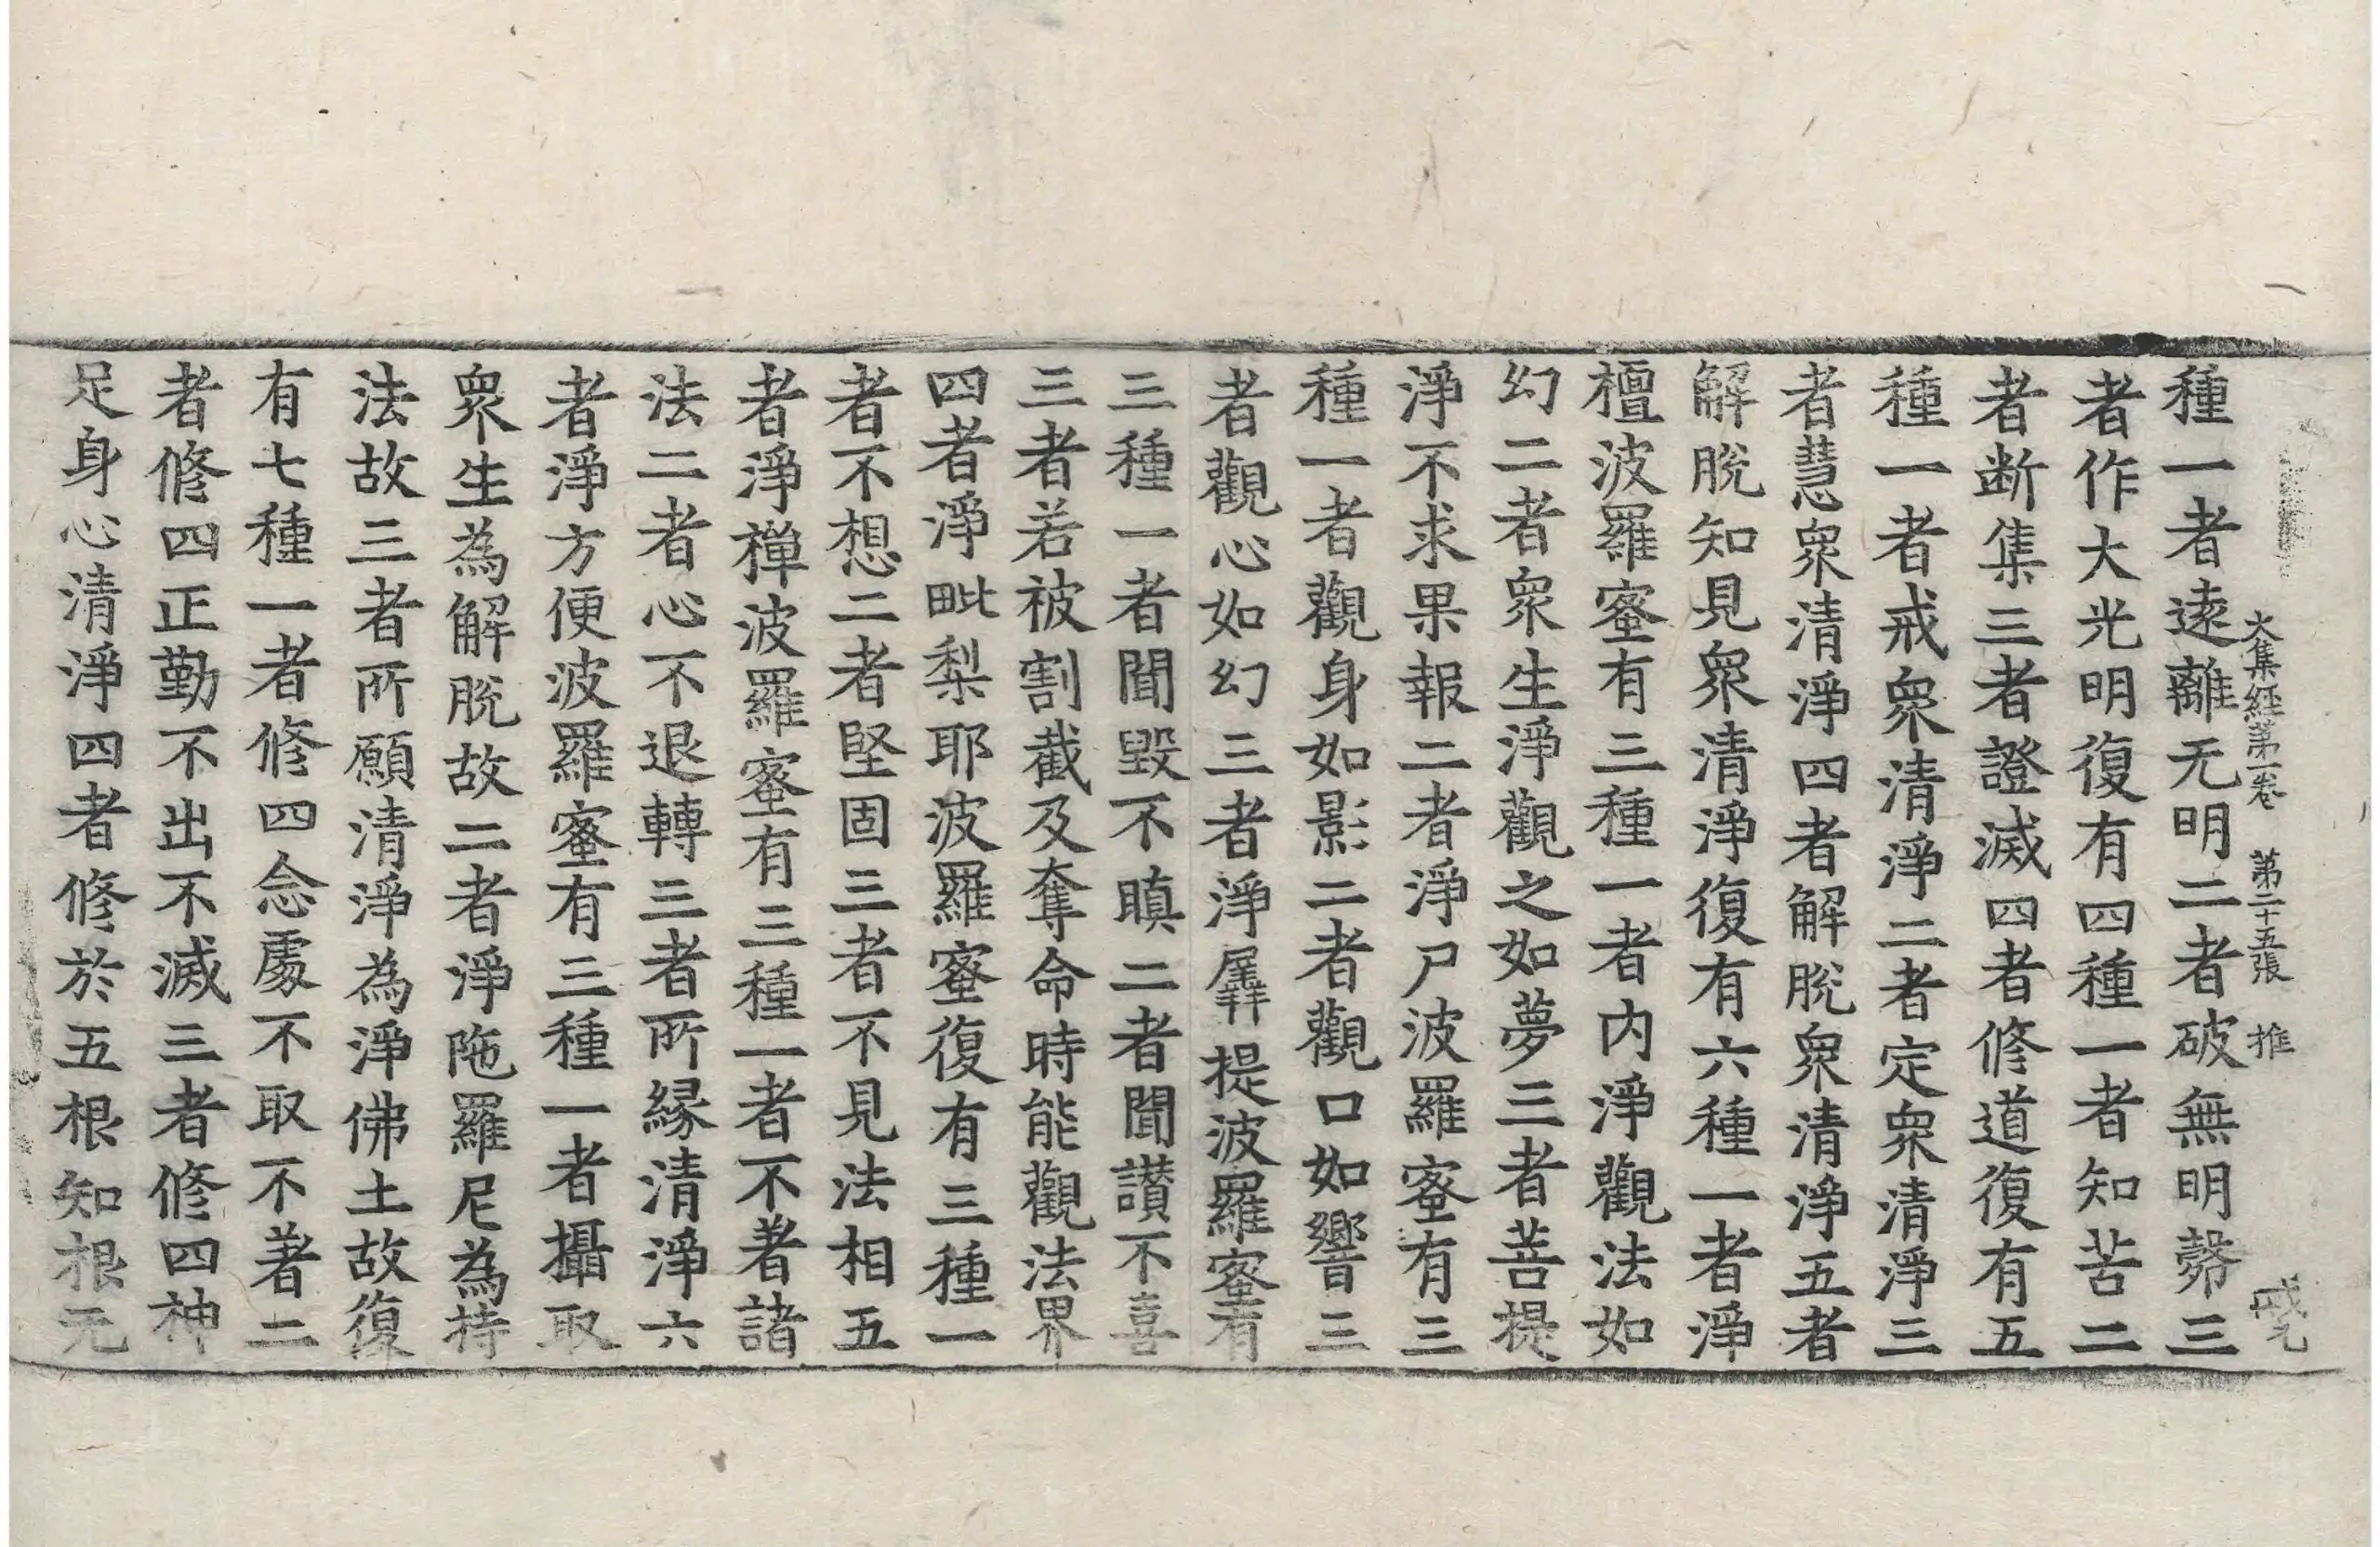 大集經第一卷 第二十五張 推
種一者遠離无明二者破無明㲉三
者作大光明復有四種一者知苦二
者断集三者證滅四者修道復有五
種一者戒衆清淨二者定衆清淨三
者慧衆清淨四者解脫衆清淨五者
解脫知見衆清淨復有六種一者淨
檀波羅蜜有三種一者內淨觀法如
幻二者衆生淨觀之如夢三者菩提
淨不求果報二者淨尸波羅蜜有三
種一者觀身如影二者觀口如響三
者觀心如幻三者淨羼提波羅蜜有
三種一者聞毀不瞋二者聞讚不喜
三者若被割截及奪命時能觀法界
四者淨毗梨耶波羅蜜復有三種一
者不想二者堅固三者不見法相五
者淨禪波羅蜜有三種一者不著諸
法二者心不退轉三者所緣清淨六
者淨方便波羅蜜有三種一者攝取
衆生為解脫故二者淨陁羅尼為持
法故三者所願清淨為淨佛土故復
有七種一者修四念處不取不著二
者修四正勤不出不滅三者修四神
足身心清淨四者修於五根知根元